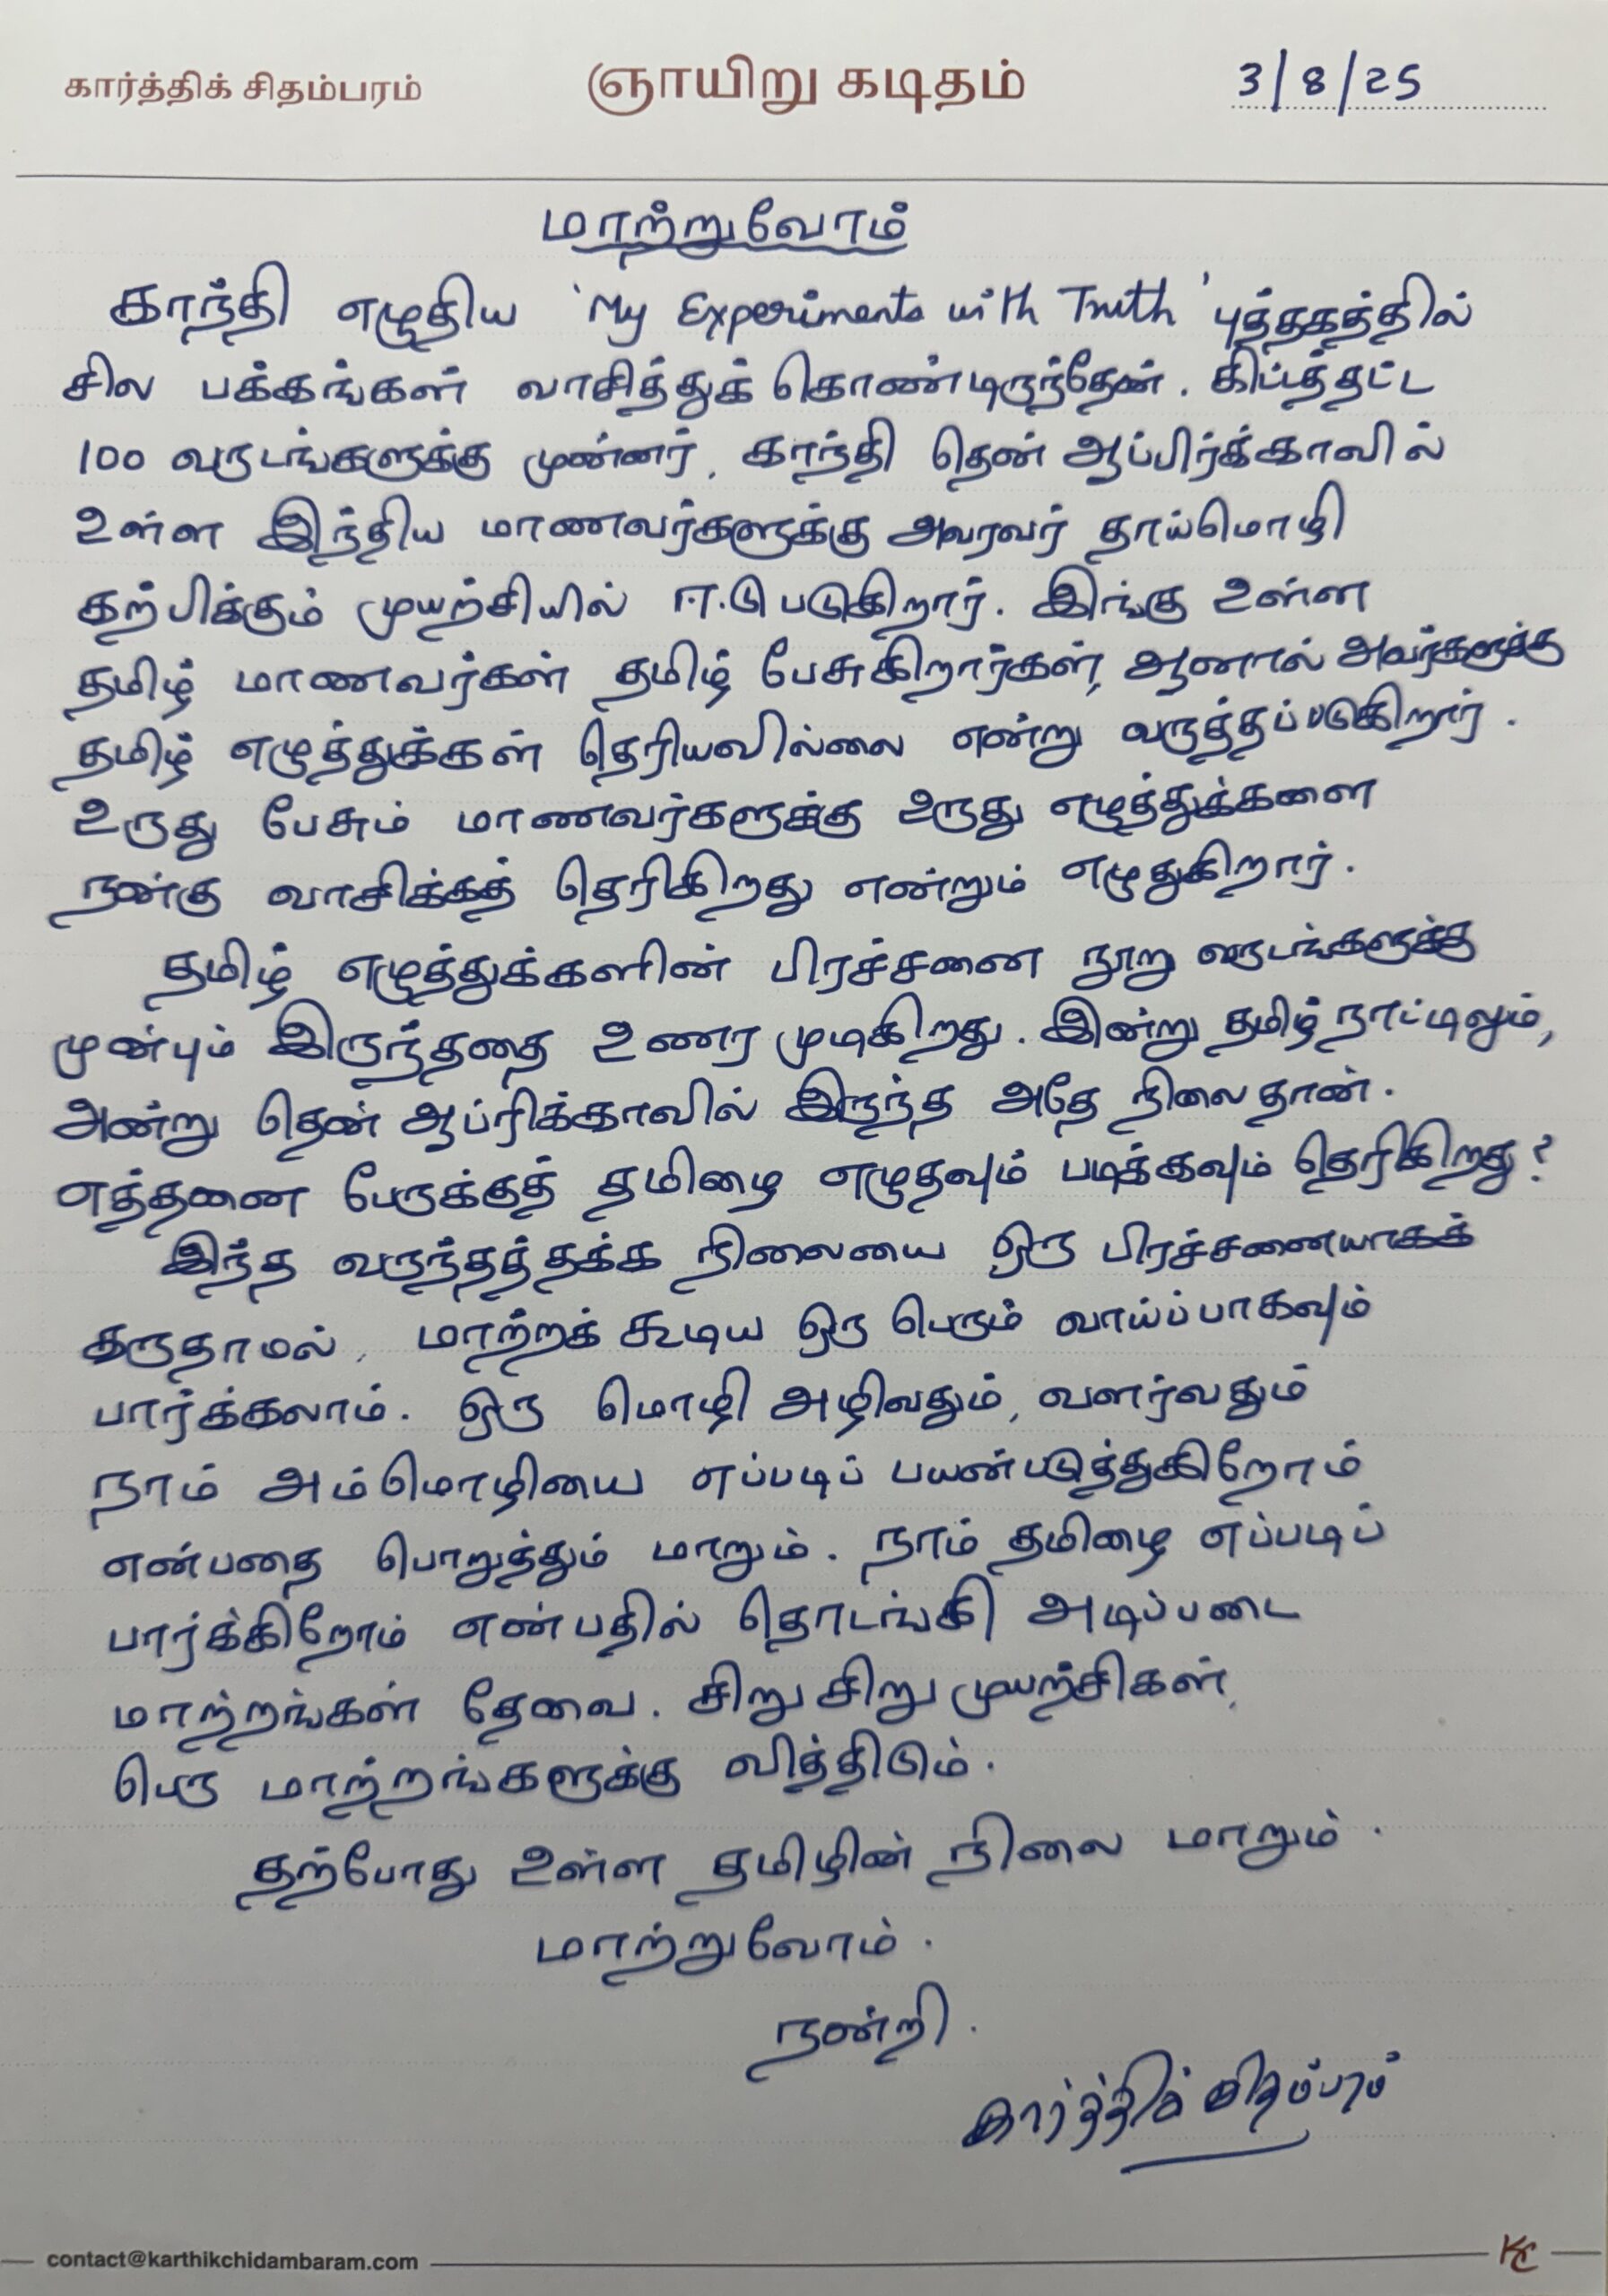 கார்த்திக் சிதம்பரம் ஞாயிறு கடிதம் 3/8/25
மாற்றுவோம்
காந்தி எழுதிய 'My Experiments with Truth' புத்தகத்தில்
சில பக்கங்கள் வாசித்துக் கொண்டிருந்தேன். கிட்டத்தட்ட
100 வருடங்களுக்கு முன்னர், காந்தி தென் ஆப்பிர்க்காவில்
உள்ள இந்திய மாணவர்களுக்கு அவரவர் தாய்மொழி
கற்பிக்கும் முயற்சியில் ஈடுபடுகிறார். இங்கு உள்ள
தமிழ் மாணவர்கள் தமிழ் பேசுகிறார்கள், ஆனால் அவர்களுக்கு
தமிழ் எழுத்துக்கள் தெரியவில்லை என்று வருத்தப்படுகிறார்.
உருது பேசும் மாணவர்களுக்கு உருது எழுத்துக்களை
நன்கு வாசிக்கத் தெரிகிறது என்றும் எழுதுகிறார்.
தமிழ் எழுத்துக்களின் பிரச்சனை நூறு வருடங்களுக்கு
முன்பும் இருந்ததை உணர முடிகிறது. இன்று தமிழ் நாட்டிலும்,
அன்று தென் ஆப்ரிக்காவில் இருந்த அதே நிலை தான்.
எத்தனை பேருக்குத் தமிழை எழுதவும் படிக்கவும் தெரிகிறது?
இந்த வருந்தத்தக்க நிலையை ஒரு பிரச்சனையாகக்
கருதாமல், மாற்றக் கூடிய ஒரு பெரும் வாய்ப்பாகவும்
பார்க்கலாம். ஒரு மொழி அழிவதும், வளர்வதும்
நாம் அம்மொழியை எப்படிப் பயன்படுத்துகிறோம்
என்பதை பொறுத்தும் மாறும். நாம் தமிழை எப்படிப்
பார்க்கிறோம் என்பதில் தொடங்கி அடிப்படை
மாற்றங்கள் தேவை. சிறு சிறு முயற்சிகள்,
பெரு மாற்றங்களுக்கு வித்திடும்.
தற்போது உள்ள தமிழின் நிலை மாறும்.
மாற்றுவோம்.
நன்றி.
கார்த்திக் சிதம்பரம்
contact@karthikchidambaram.com KC